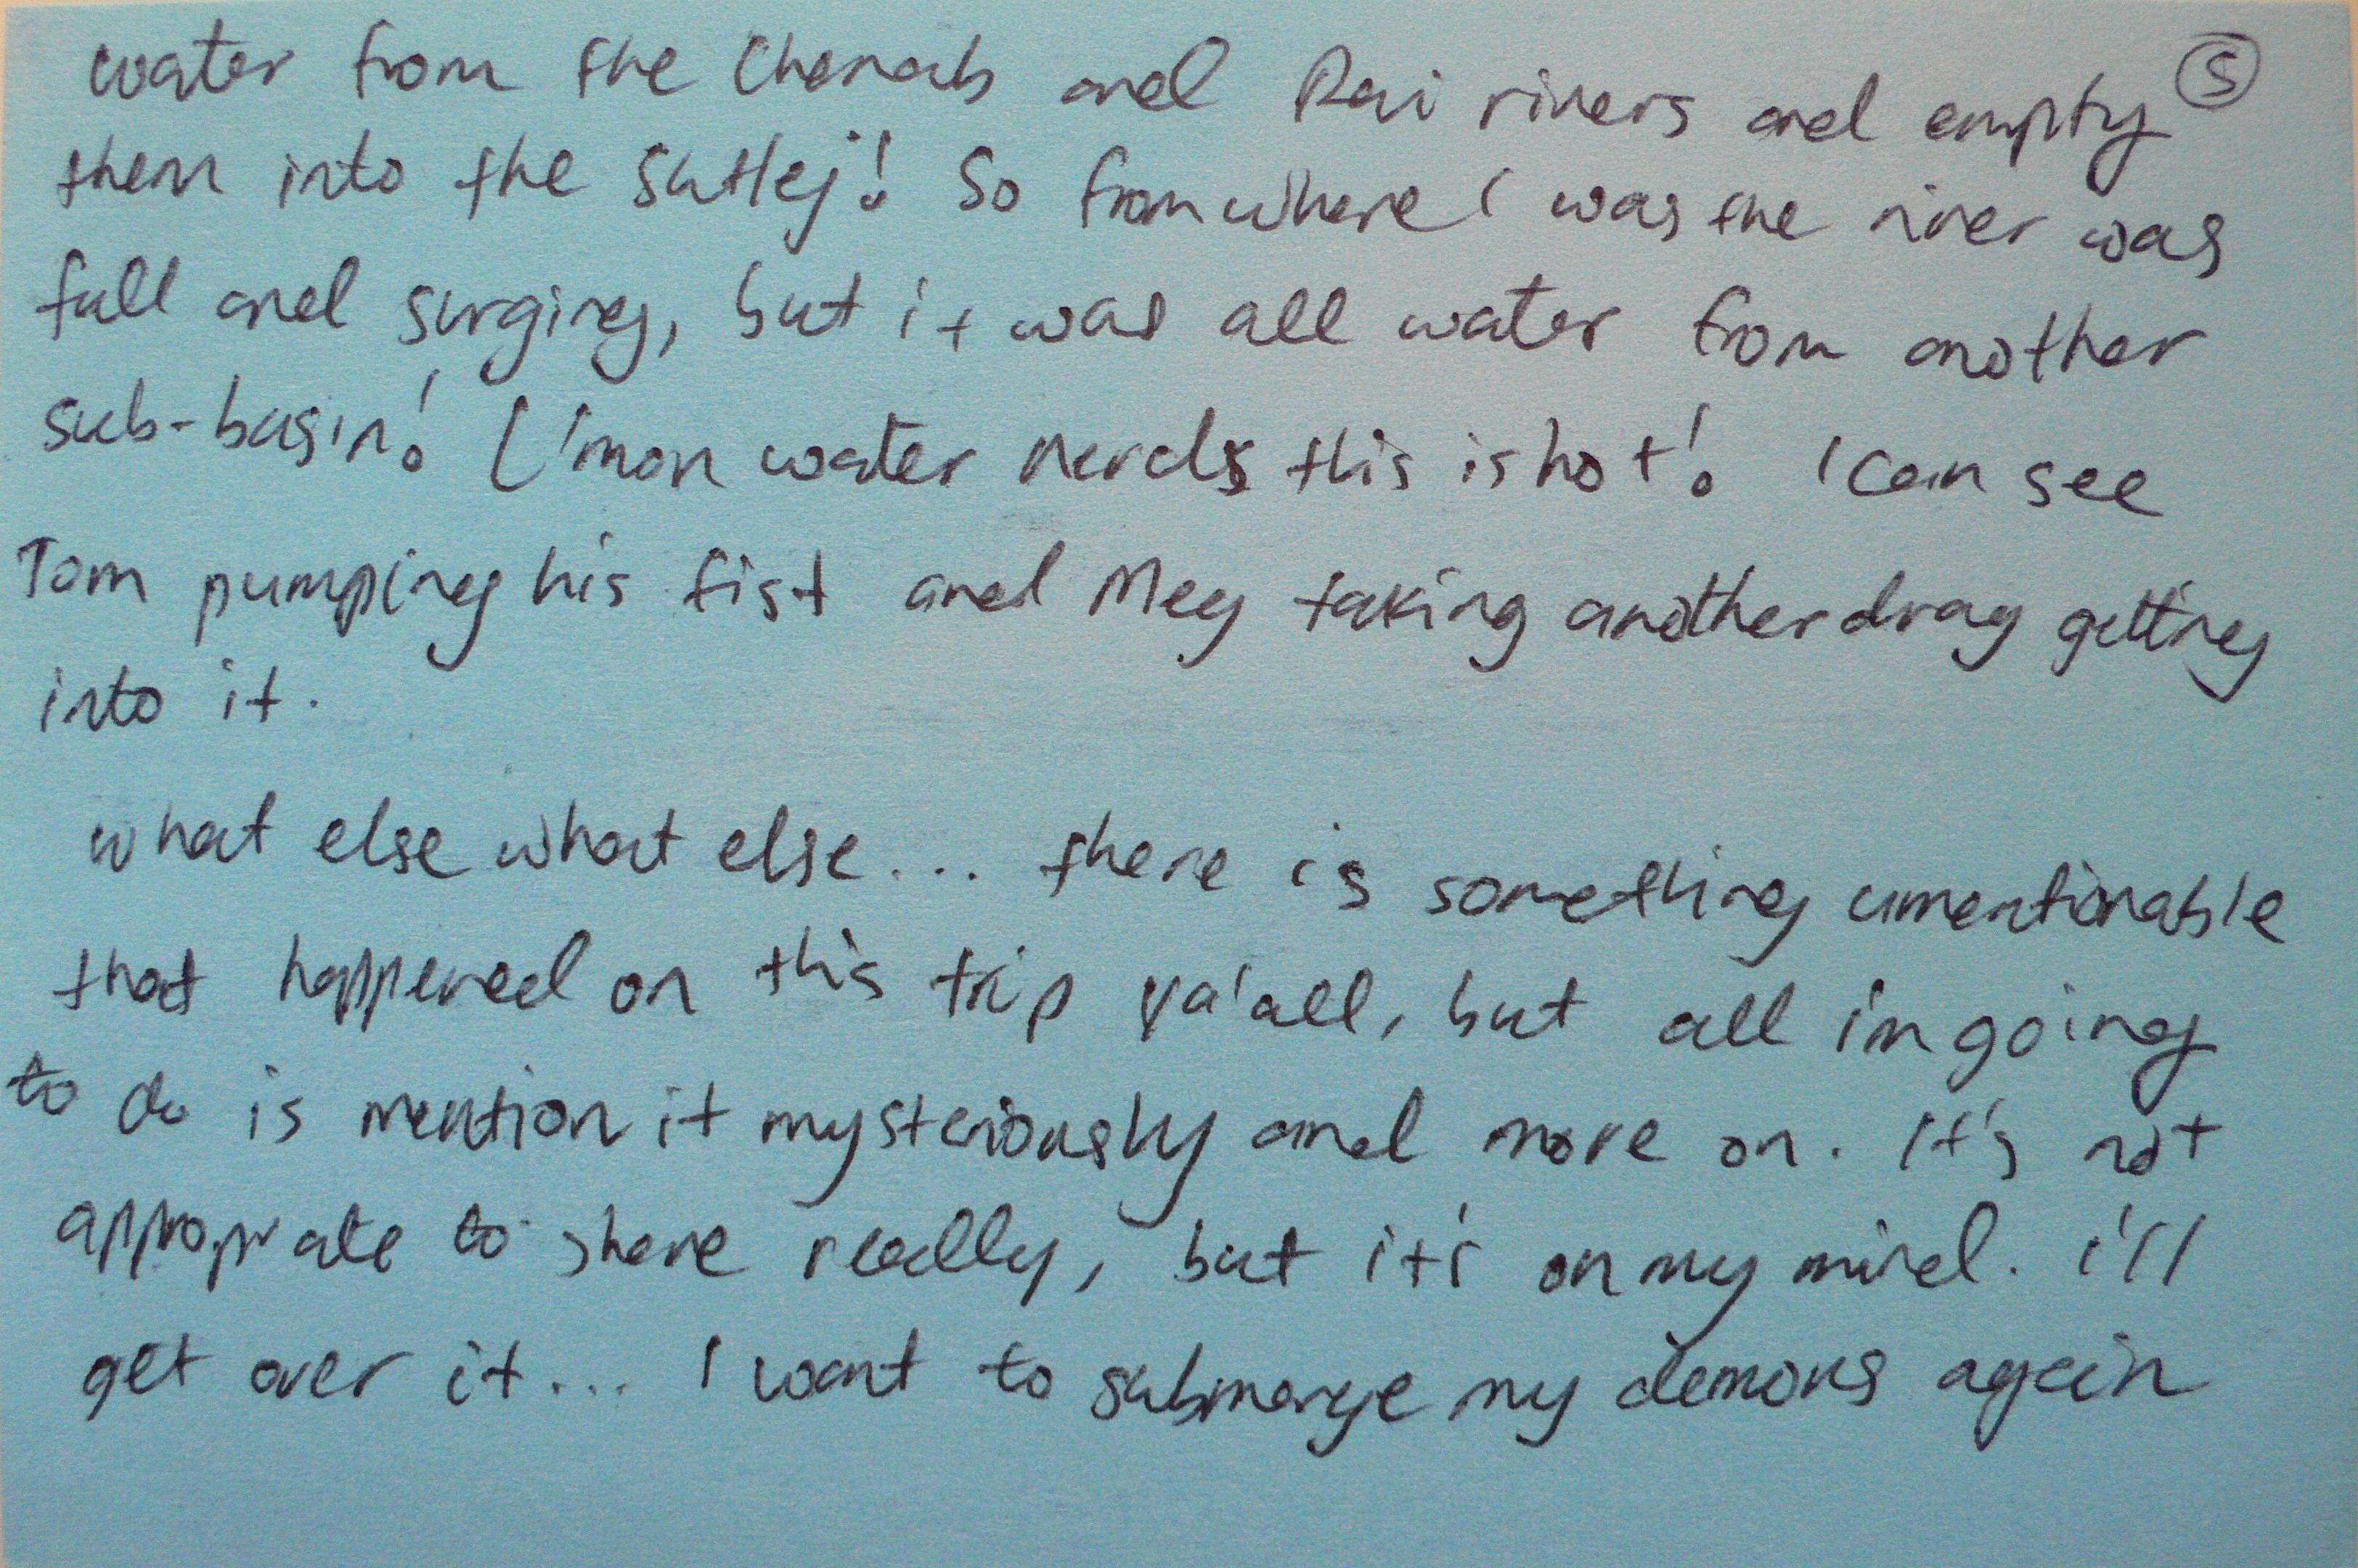 water from the Chenab and Ravi rivers and empty (5)
them into the Sutlej! So from where I was the river was
full and surging, but it was all water from another
sub-basin! C'mon water nerds this is hot! I can see
Tom pumping his fist and Meg taking another drag getting
into it.
what else what else... there is something umentionable
that happened on this trip ya'all, but all i'm going
to do is mention it mysteriously and move on. It's not
appropriate to share really, but it's on my mind. i'll
get over it... I want to submerge my demons again